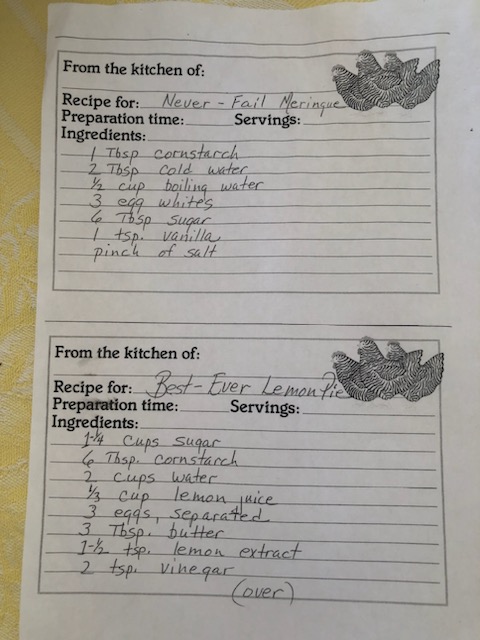 From the kitchen of:
Recipe for: Never-Fail Meringue
Preparation time: Servings:
Ingredients:
1 Tbsp cornstarch
2 Tbsp cold water
1/2 cup boiling water
3 egg whites
6 Tbsp sugar
1 tsp. vanilla
pinch of salt
From the kitchen of:
Recipe for: Best-Ever Lemon Pie
Preparation time: Servings:
Ingredients:
1-1/4 cups sugar
6 Tbsp. cornstarch
2 cups water
1/3 cup lemon juice
3 eggs, separated
3 Tbsp. butter
1-1/2 tsp. lemon extract
2 tsp. vinegar
(over)